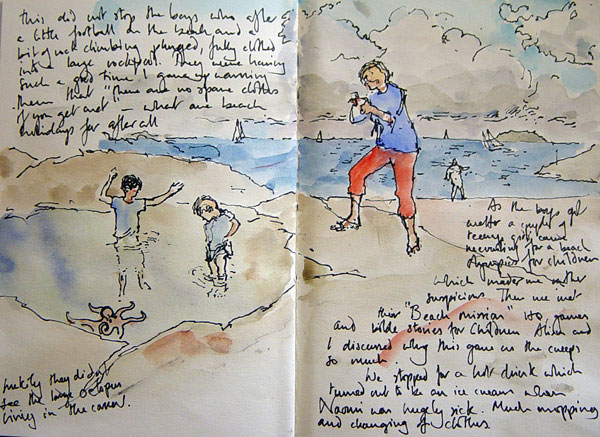 this did not stop the boys who after
a little football on the beach and a
bit of rock climbing plunged, fully clothed
into a large rockpool. They were having
such a good time I gave up warning
them that "There are no spare clothes
if you get wet" – what are beach
holidays for after all
Luckily they didn't
see the large octopus
living in the corner!
As the boys got
wetter a couple of
teeny girls came
recruiting for a beach
Olympics for children
which made me rather
suspicious. Then we met
their "Beach mission" two games
and bible stories for children. Alison and
I discussed why this gave us the creeps
so much.
We stopped for a hot drink which
turned out to be an ice cream when
Naomi was hugely sick. Much mopping
and changing of clothes.